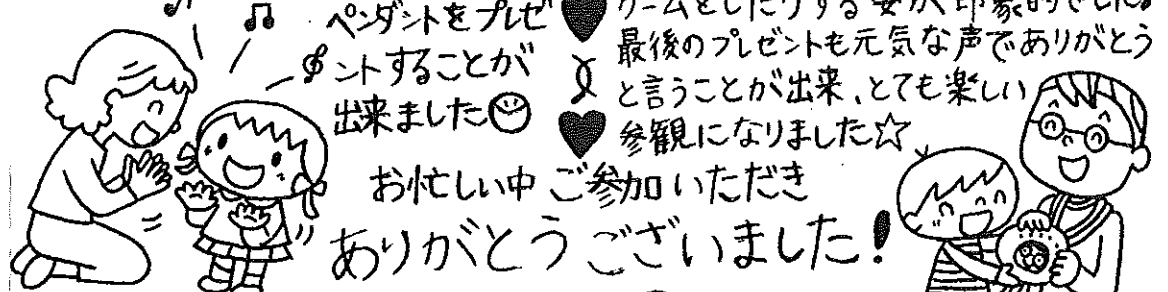 ペンダントをプレゼ
ントすることが
出来ました
ゲームをしたりする姿が印象的でした。
最後のプレゼントも元気な声でありがとう
と言うことが出来、とても楽しい
参観になりました☆
お忙しい中ご参加いただき
ありがとうございました!